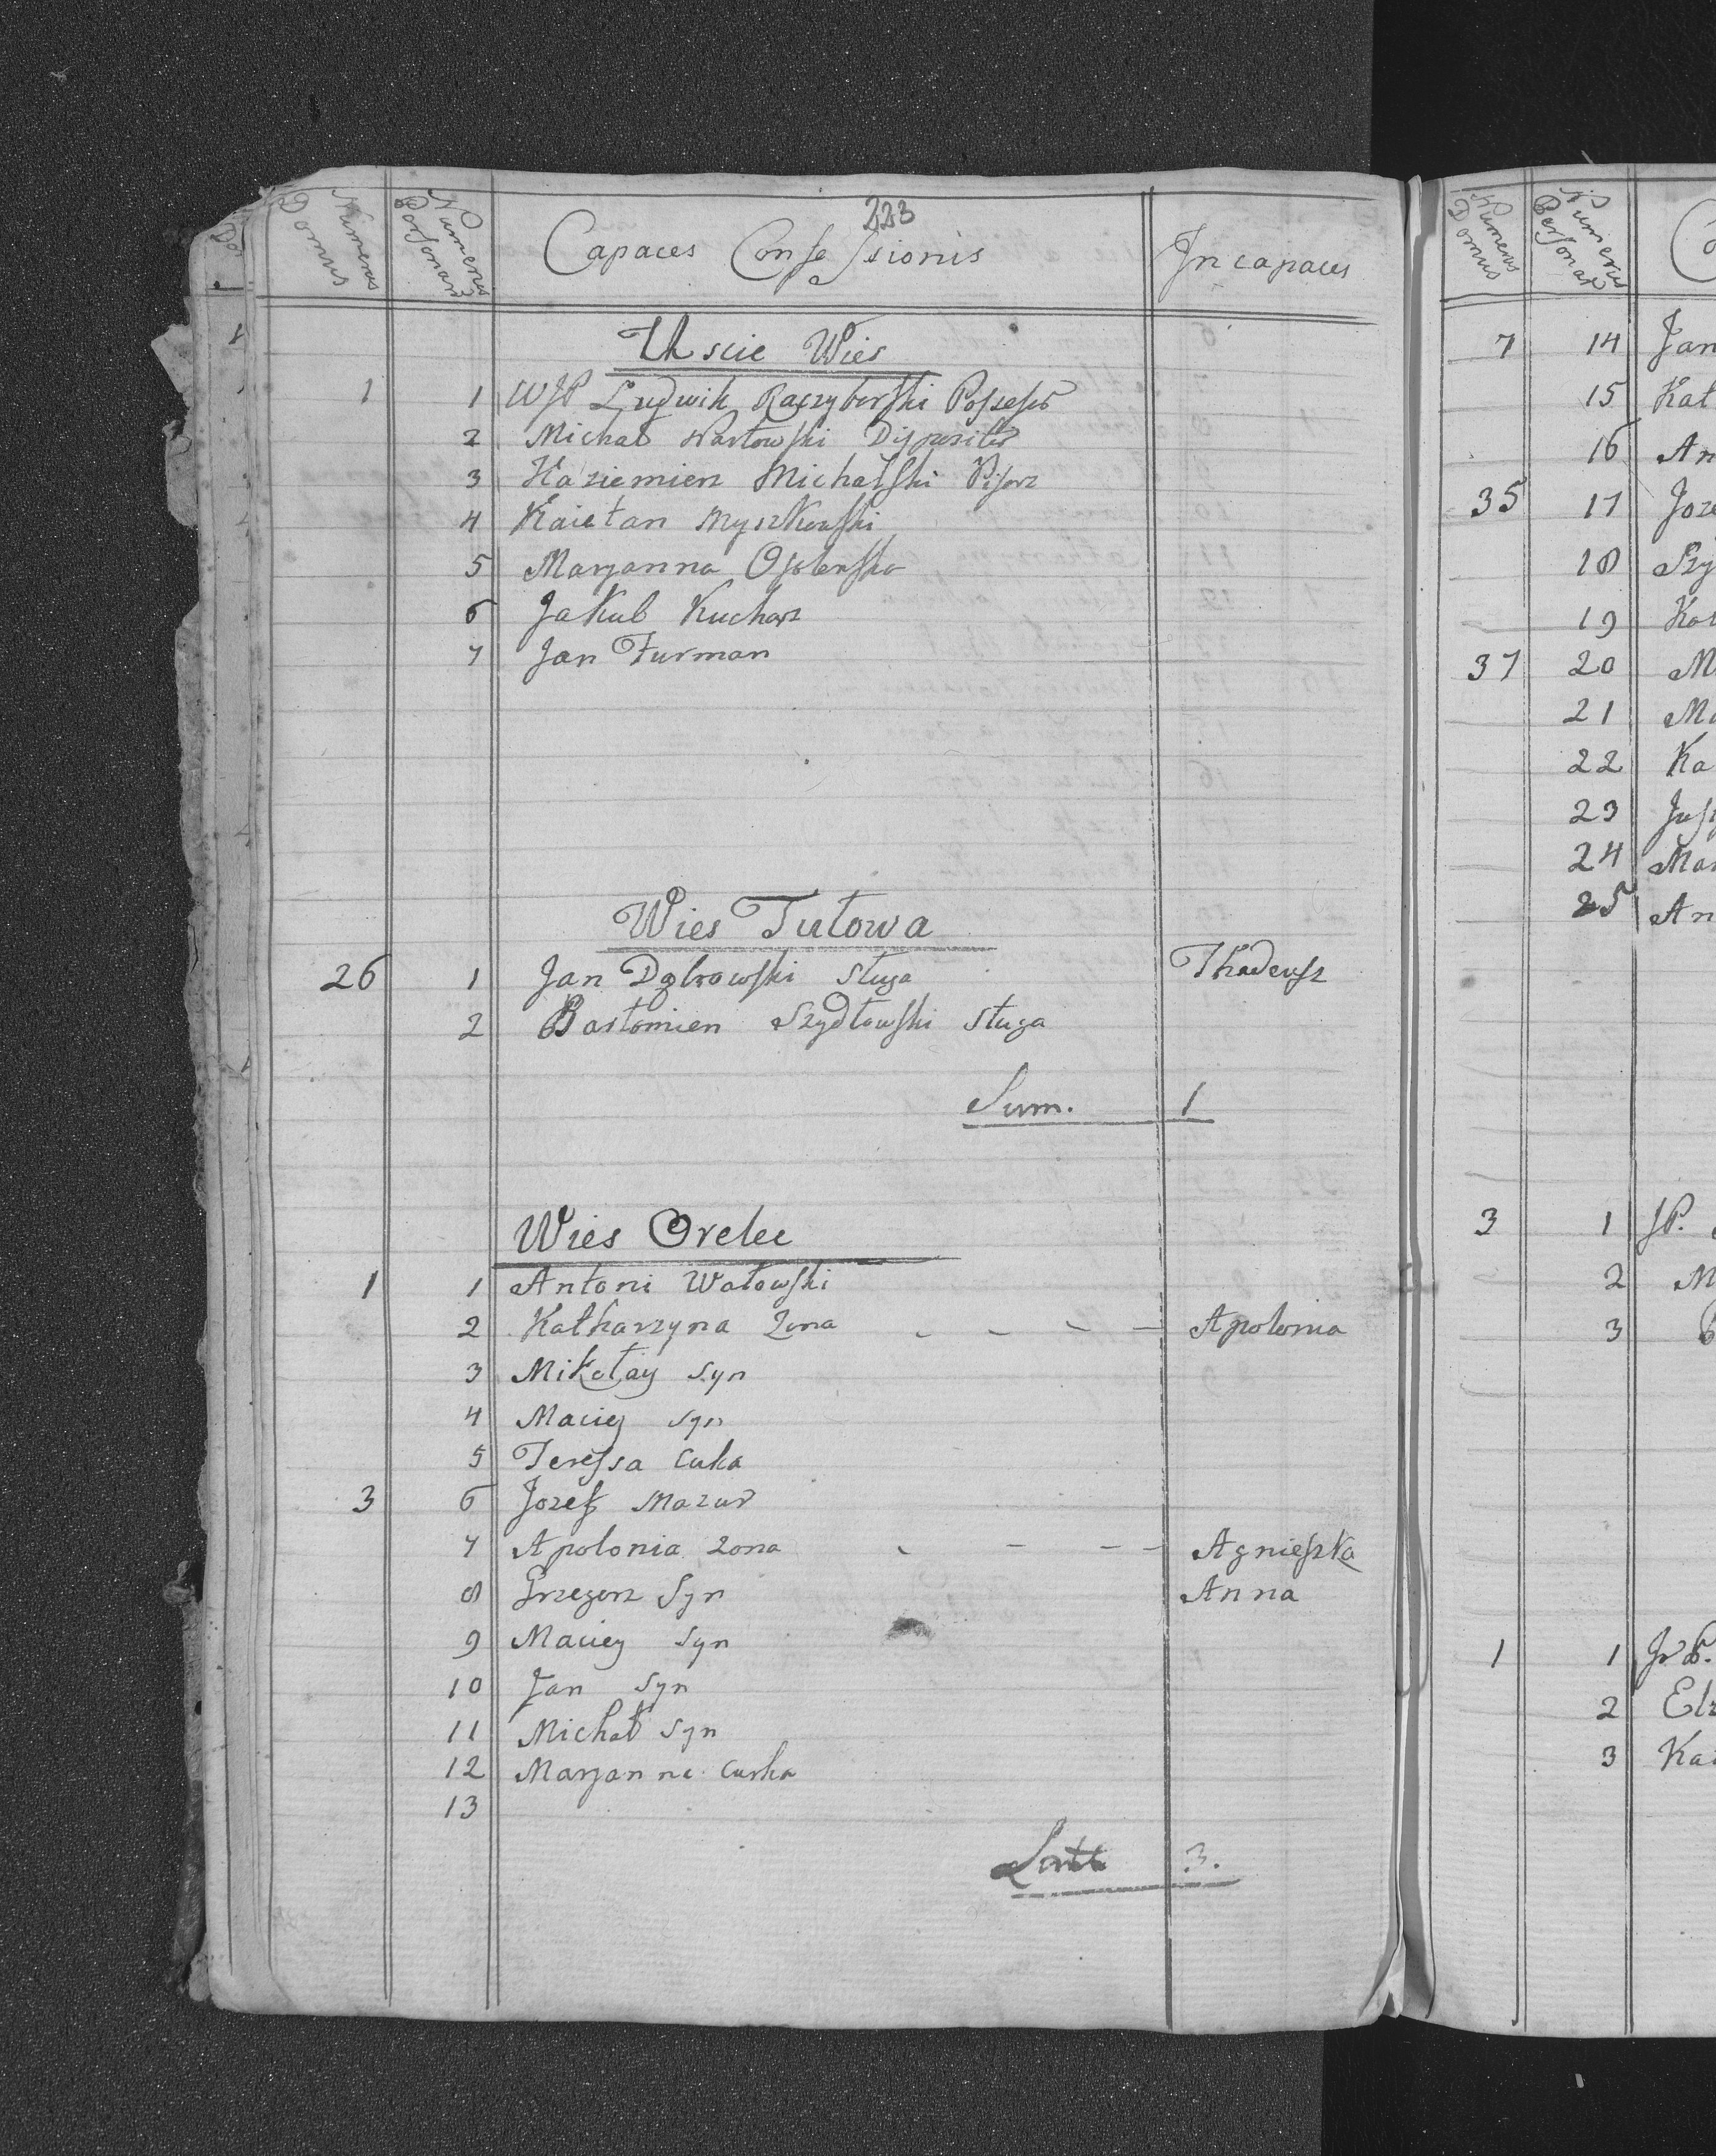 223
Numerus Domus Numerus Personarum Capaces Confessionis Incapaces
Uscie Wies
1 1 WJP Ludwik Raczyborski Possessor
2 Michał Wartowski Dispozitor
3 Kaziemierz Michalski Pisarz
4 Kaietan Myszkowski
5 Maryanna
6 Jakub Kucharz
7 Jan Furman
Wies Tutowa
26 1 Jan Dąbrowski sługa Thadeusz
2 Bartomien Szydłowski sługa
Sum. 1
Wies Orelec
1 1 Antoni Watowski
2 Katharzyna Zona - - - - Apolonia
3 Mikołay Syn
4 Maciey Syn
5 Teressa Cuka
3 6 Jozef Mazur
7 Apolonia Zona - - - - Agnieszka
8 Grzegorz Syn Anna
9 Maciey Syn
10 Jan Syn
11 Michał Syn
12 Maryanna Curka
13
3.
Numerus Domus Numerus Personar
7 14 Jan
15 Kat
16 An
35 17 Joze
18 Szy
19
37 20 M
21 Ma
22 Ka
23 Jus
24 Mar
25 An
3 1 JP.
2 M
3
1 1
2 Elz
3 Kai